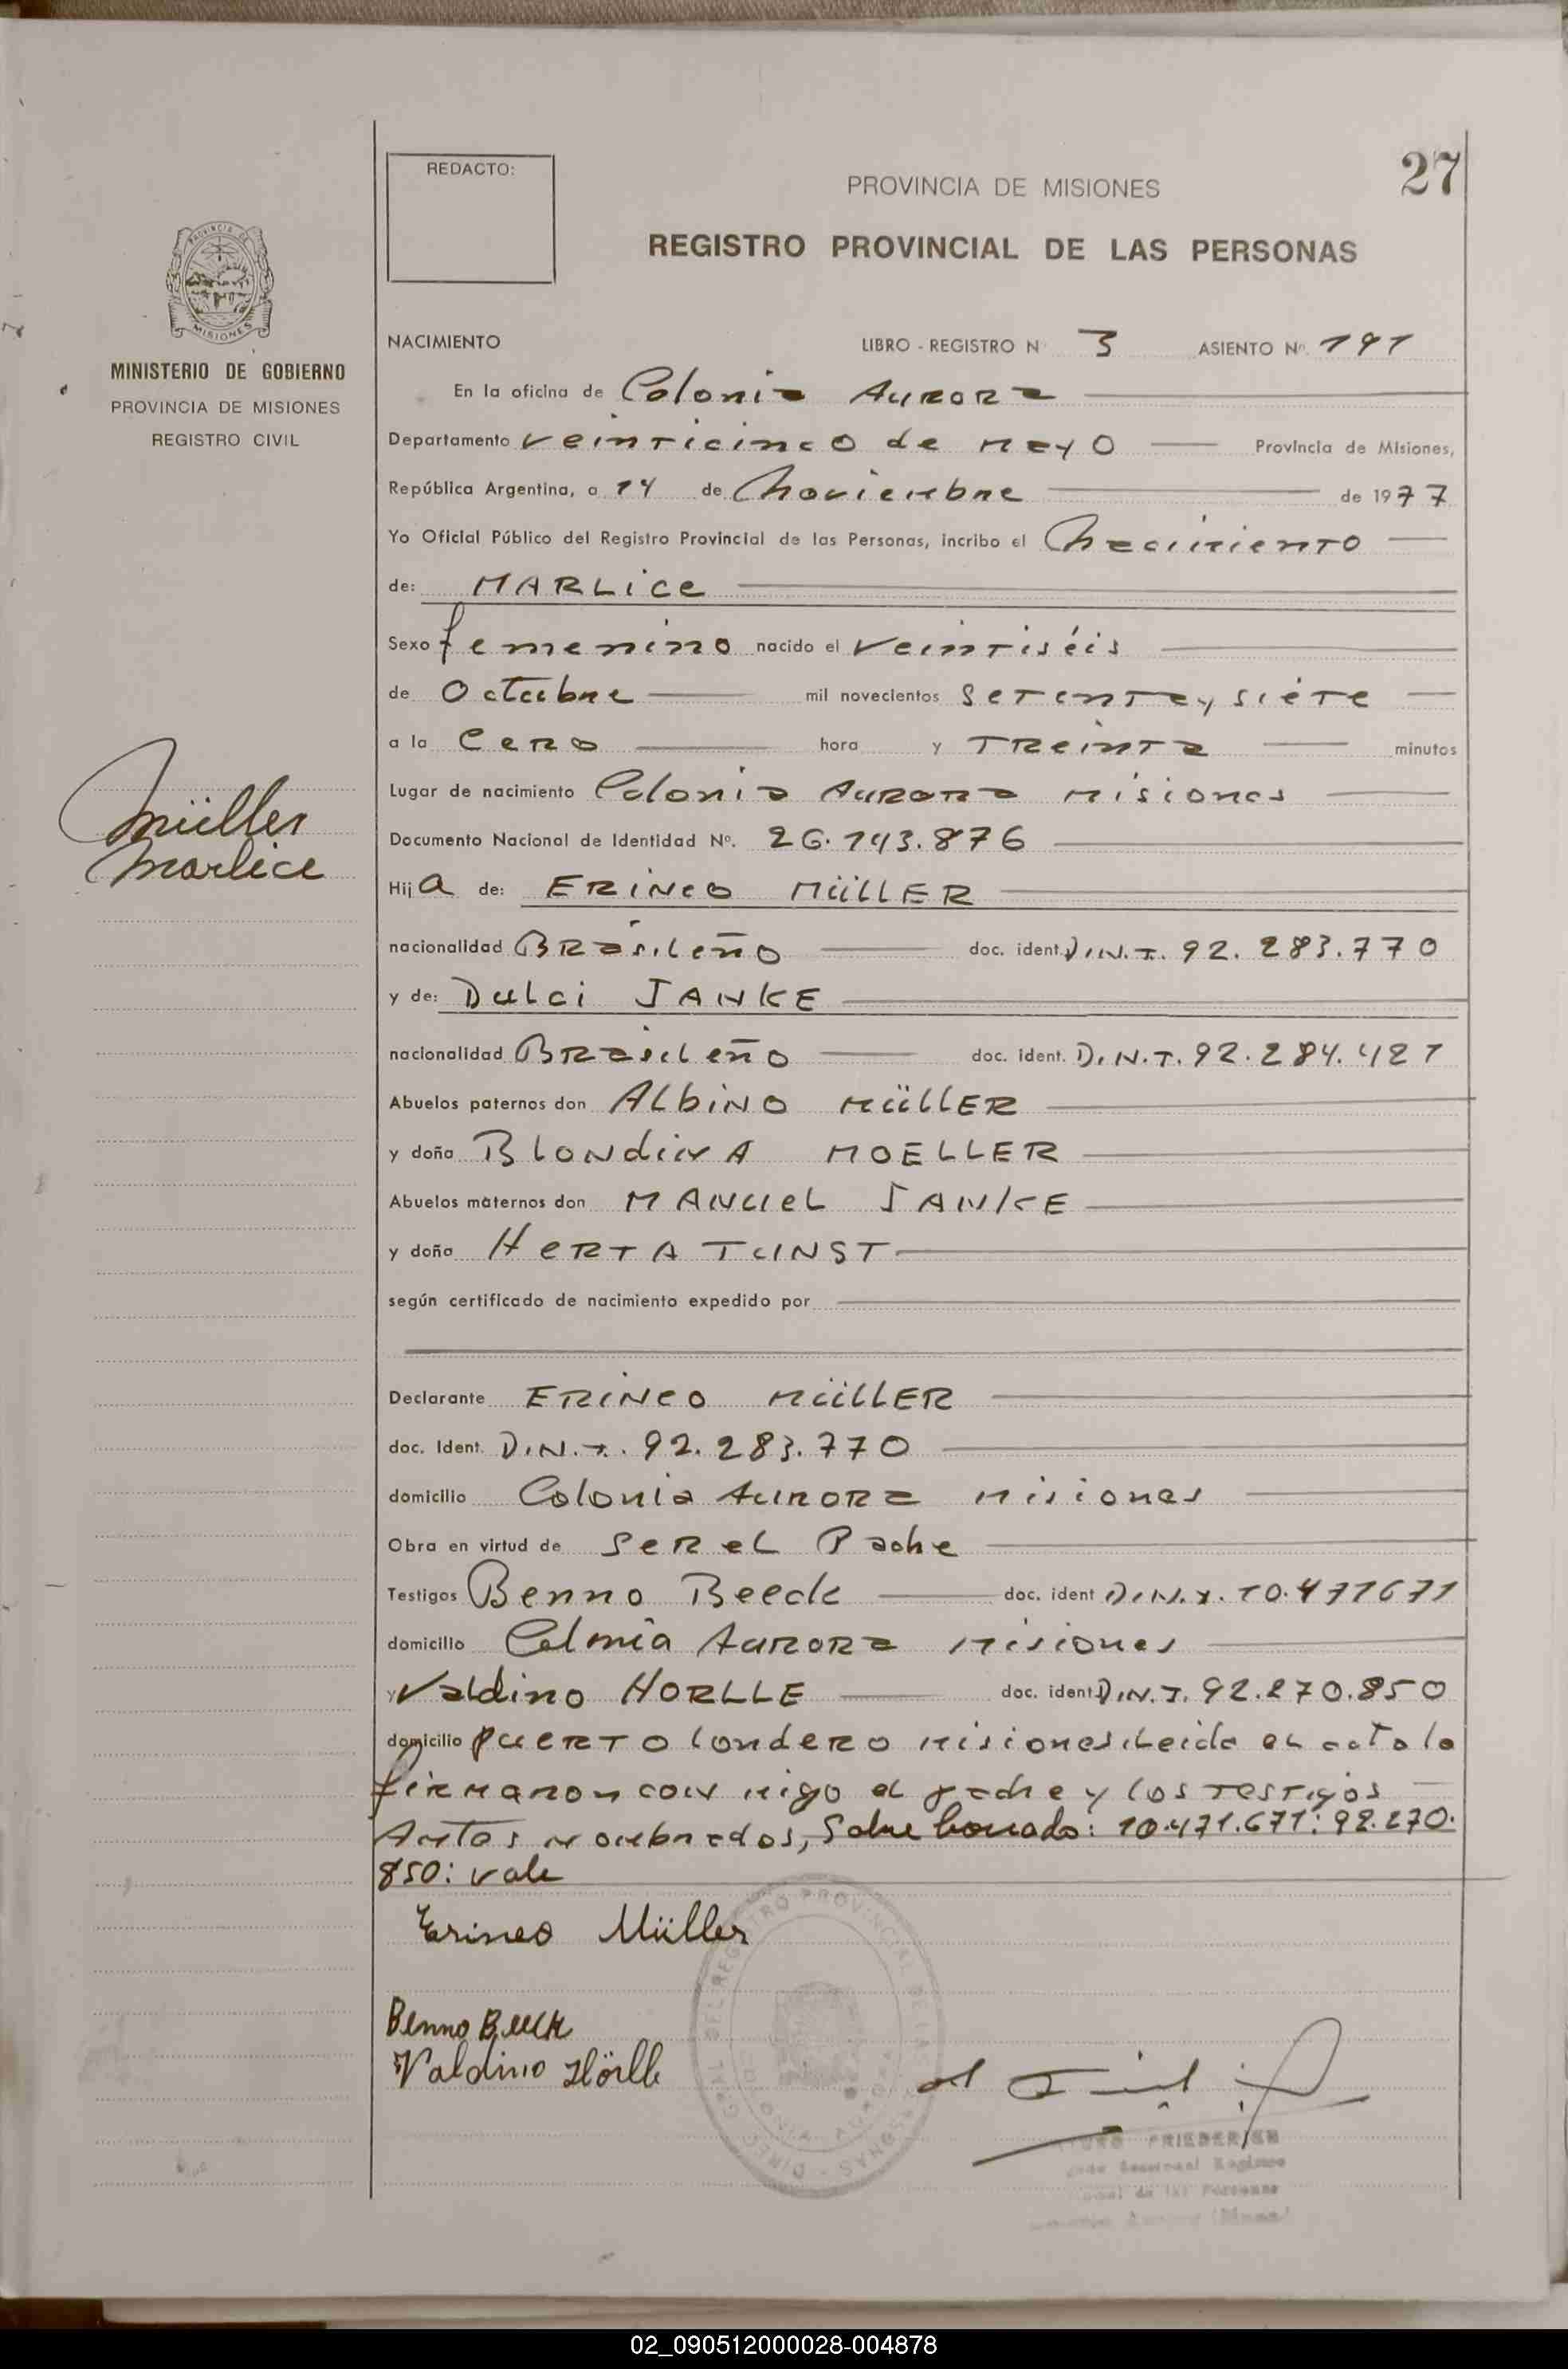 27
REDACTO:
PROVINCIA DE MISIONES
REGISTRO PROVINCIAL DE LAS PERSONAS
PROVINCIA DE
MISIONES
MINISTERIO DE GOBIERNO
PROVINCIA DE MISIONES
REGISTRO CIVIL
Müller
Marlice
NACIMIENTO LIBRO - REGISTRO N 3 ASIENTO Nº. 191
En la oficina de Colonia Aurora
Departamento veinticinco de Mayo Provincia de Misiones,
República Argentina, a 14 de Noviembre de 1977
Yo Oficial Público del Registro Provincial de las Personas, incribo el Nacimiento
de: MARLice
Sexo femenino nacido el veintiséis
de Octubre mil novecientos setenta y siéte
a la Cero hora y Treinta minutos
Lugar de nacimiento Colonia Aurora Misiones
Documento Nacional de Identidad Nº. 26.143.876
Hija de: ERiNeo MüLLER
nacionalidad Brasileño doc. ident. D.N.I. 92.283.770
y de: Dulci JANKE
nacionalidad Brasileño doc. ident. D.N.I. 92.284.427
Abuelos paternos don ALbiNO MüLLER
y doña BLONdiNA MOELLER
Abuelos maternos don MANueL JANKE
y doña HeRTA
según certificado de nacimiento expedido por
Declarante ERiNeo MüLLER
doc. Ident. D.N.I. 92.283.770
domicilio Colonia Aurora Misiones
Obra en virtud de ser el Padre
Testigos Benno Beeck doc. ident D.N.I. 10.471671
domicilio Colonia Aurora Misiones
y Valdino HORLLE doc. ident. D.N.I. 92.270.850
domicilio Puerto Londero Misiones. Leida el acta la
firmaron con migo el padre y los testigos
Antes nombrados, Sobre borrado: 10.471.671: 92.270.
850: vale
Erineo Müller
Benno Beeck
Valdino Hörlle
FRIEDERICH
02_090512000028-004878